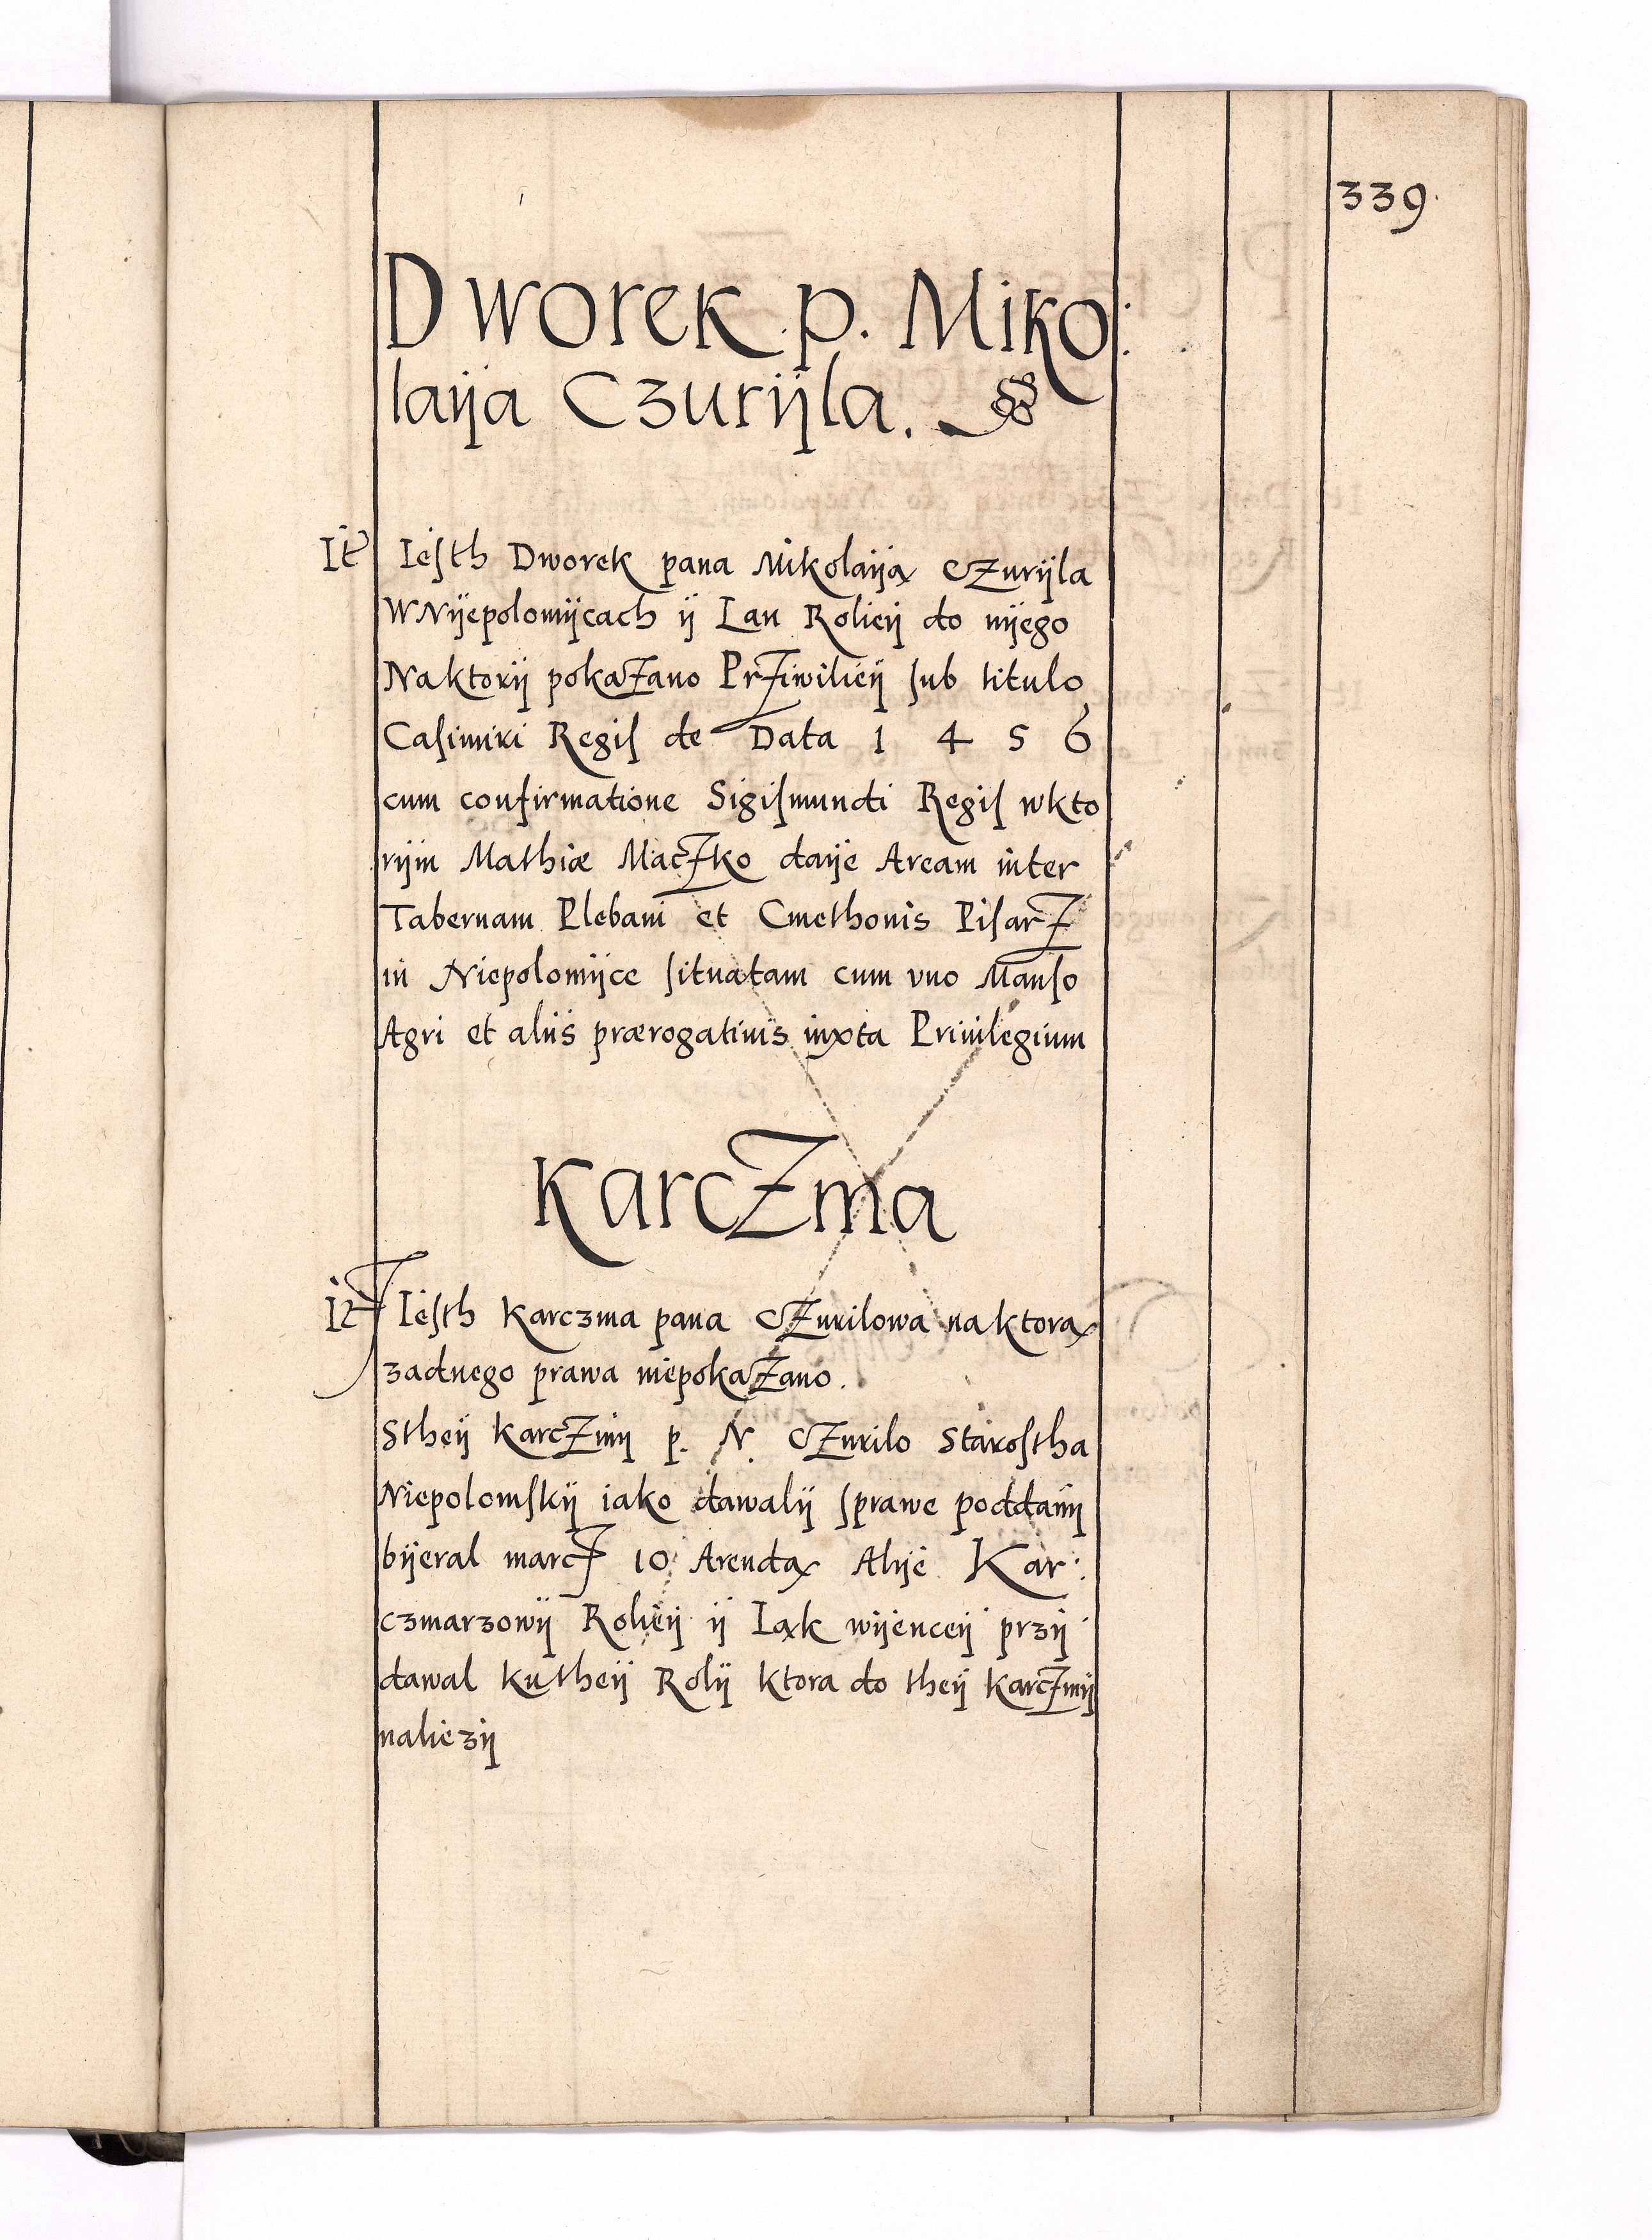 339.
Dworek .p. Miko:
laija Czurijla.
It Iesth Dworek pana Mikolaija Czurijla
WNijepolomijcach ij Lan Rolieij do nijego
Naktorij pokazano Prziwilieij sub titulo
Casimiri Regis de Data 1 4 5 6
cum confirmatione Sigismundi Regis wkto
rijm Mathiæ Maczko daije Aream inter
Tabernam Plebani et Cmethonis Pisarz
in Niepolomijce situatam cum vno Manso
Agri et aliis prærogativis iuxta Privilegium
Karczma
It Iesth Karczma pana Czurilowa naktora
zadnego prawa niepokazano.
Stheij Karczmij p. N. Czurilo Starostha
Niepolomskij iako dawalij sprawe poddanij
bijeral marcz 10 Arenda Alije Kar:
czmarzowij Roliеij ij Ląk wijenceij przij
dawal Kutheij Rolij ktora do theij Karczmij
naliezij